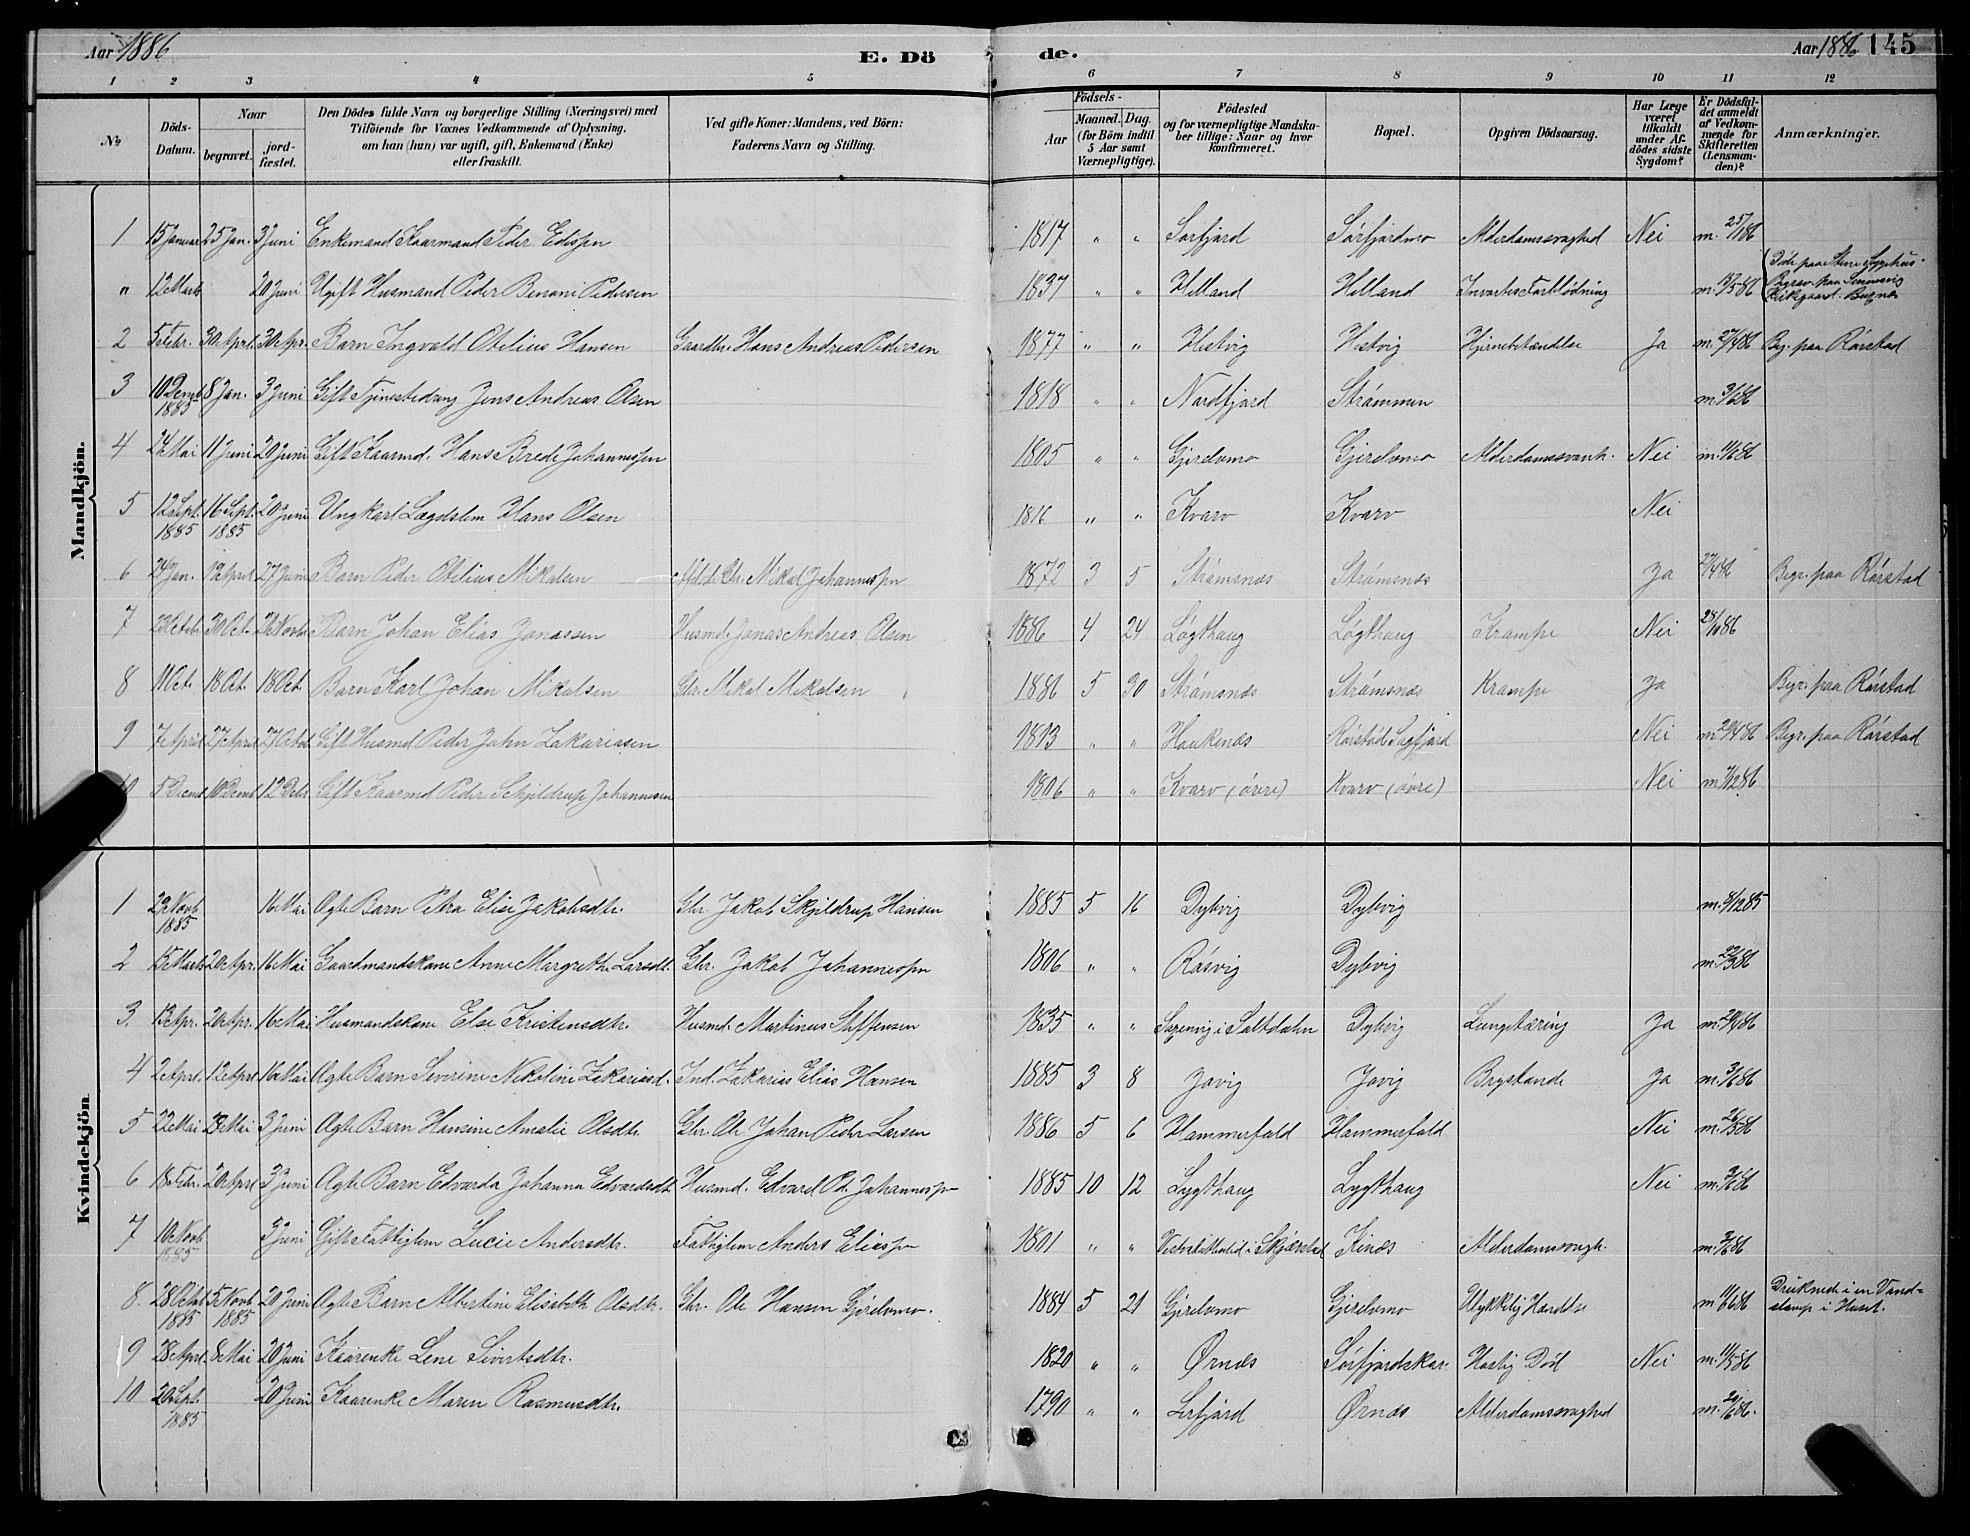 Aar 1886
E. Dö
de.
Aar 1886 145
1 2 3 4 5 6 7 8 9 10 11 12
№
Döds-Datum.
Naar
begravet.
jord-fæstet.
Den Dödes fulde Navn og borgerlige Stilling (Næringsvei) med
Tilföiende for Voxnes Vedkommende af Oplysning,
om han (hun) var ugift, gift, Enkemand (Enke)
eller fraskilt.
Ved gifte Koner: Mandens, ved Börn:
Faderens Navn og Stilling.
Födsels-
Aar
Maaned. Dag.
(for Börn indtil
5 Aar samt
Værnepligtige).
Födested
og for værnepligtige Mandska-
ber tillige: Naar og hvor
konfirmeret.
Bopæl.
Opgiven Dödsaarsag.
Har Læge
været
tilkaldt
under Af-
dödes sidste
Sygdom?
Er Dödsfal-
det anmeldt
af Vedkom-
mende for
Skifteretten
(Lensman-
den)?
Anmærkninger.
Mandkjön.
1 15 Januar 25 Jan. 3 Juni Enkemand Kaarmand Peder Edispn 1817 " " Sørfjord Sørfjordmo Alderdomssvaghed Nei m. 25/1 86
" 12 Marts 20 Juni Ugift Husmand Peder Benoni Pedersen 1837 " " Helland Helland Invortes Forblødning m. 13/5 86 Døde paa Stene Sygehus. Begrav. paa Kirkegaard.
2 5 Febr. 30 April 30 Apr. Barn Ingvald Otelius Hansen Gaardbr. Hans Andreas Pedersen 1877 " " Hestvig Hestvig Hjernebetændelse Ja m. 27/4 86 Beg. paa Rørstad
3 10 Decmb 1885 8 Jan. 3 Juni Gift Jens Andreas Olsen 1818 " " Nordfjord Strømmen m. 3/6 86
4 24 Mai 11 Juni 20 Juni Gift Kaarmd. Hans Brede Johannespn 1805 " " Gjerelvmo Gjerelvmo Alderdomssvakh. Nei m. 11/6 86
5 12 Sept. 1885 16 Sept. 1885 20 Juni Ungkarl Lægdslem Hans Olsen 1816 " " Kvarv Kvarv Nei
6 24 Jan. 12 April 27 Juni Barn Peder Otelius Mikalsen Gbr. Mikal Johannespn 1872 3 5 Strømsnes Strømsnes Ja 27/4 86 Begr. paa Rørstad
7 23 Octob 30 Oct. 26 Novb Barn Johan Elias Jonassen Husmd. Jonas Andreas Olsen 1886 4 24 Løgthaug Løgthaug Krampe Nei 28/10 86
8 11 Oct. 18 Oct. 18 Oct. Barn Karl Johan Mikalsen Gbr. Mikal Mikalsen 1886 5 30 Strømsnes Strømsnes Krampe Ja Begr. paa Rørstad
9 7 April 27 April 27 Octob Gift Husmd Peder John Zakariasen 1813 " " Haukenes Rørstad Sagfjord Nei m. 20/4 86 Begr. paa Rørstad
10 5 Decmb 10 Decmb 12 Debr Gift Kaarmd Peder Schjeldrup Johannessen 1806 " " Kvarv (øvre) Kvarv (øvre) Nei m. 7/12 86
Kvindekjön.
1 29 Novb 1885 16 Mai Ægte Barn Petra Elise Jakobsdtr. Gbr. Jakob Skjeldrup Hansen 1885 5 16 Dybvig Dybvig m. 4/12 85
2 15 Marts 20 Apr. 16 Mai Gaardmandskone Anne Margrethe Larsdt. Gbr. Jakob Johannespn 1806 " " Røsvig Dybvig m. 22/3 86
3. 13 Apr. 20 Apr. 16 Mai Husmandskone Else Kristensdtr. Husmd. Martinus Steffensen 1835 " " i Saltdalen Dybvig Lungetæring Ja m. 20/4 86
4 2 April. 12 April 16 Mai Ægte Barn Severine Nikoline Zakariasd. Ind. Zakarias Elias Hansen 1885 3 8 Javig Javig Brystonde Ja m. 3/6 86
5 22 Mai 29 Mai 3 Juni Ægte Barn Hansine Amalie Olsdtr. Gbr. Ole Johan Peder Larsen 1886 5 6 Hammerfald Hammerfald Nei m. 26/5 86
6 18 Febr. 20 April 3 Juni Ægte Barn Edvarda Johanna Edvardsdt Husmd. Edvard Pd. Johannespn 1885 10 12 Lygthaug Lygthaug Nei m. 3/6 86
7 10 Novb 1885 3 Juni Gift Fattiglem Lucie Andersdtr. Fattiglem Anders Eliaspn 1801 " " i Skjerstad Kines Alderdomssvagh. m. 3/6 86
8. 28 Octob 1885 5 Novb 1885 20 Juni Ægte Barn Albertine Elisabeth Olsdtr. Gbr. Ole Hansen Gjerelvmo. 1884 5 21 Gjerelvmo Gjerelvmo Ulykkelig Hændelse m. 11/6 86 Druknede i en Vand-stamp i Huset.
9 28 April. 8 Mai 20 Juni Kaarenke Lene Sivertsdtr. 1820 " " Ørnes Sørfjordskar. Hastig Død Nei m. 11/5 86
10 20 Sept. 1885 20 Juni Kaarenke Maren Rasmusdtr. 1790 " " Lerfjord Ørnes Alderdomssvaghed m. 20/6 86.